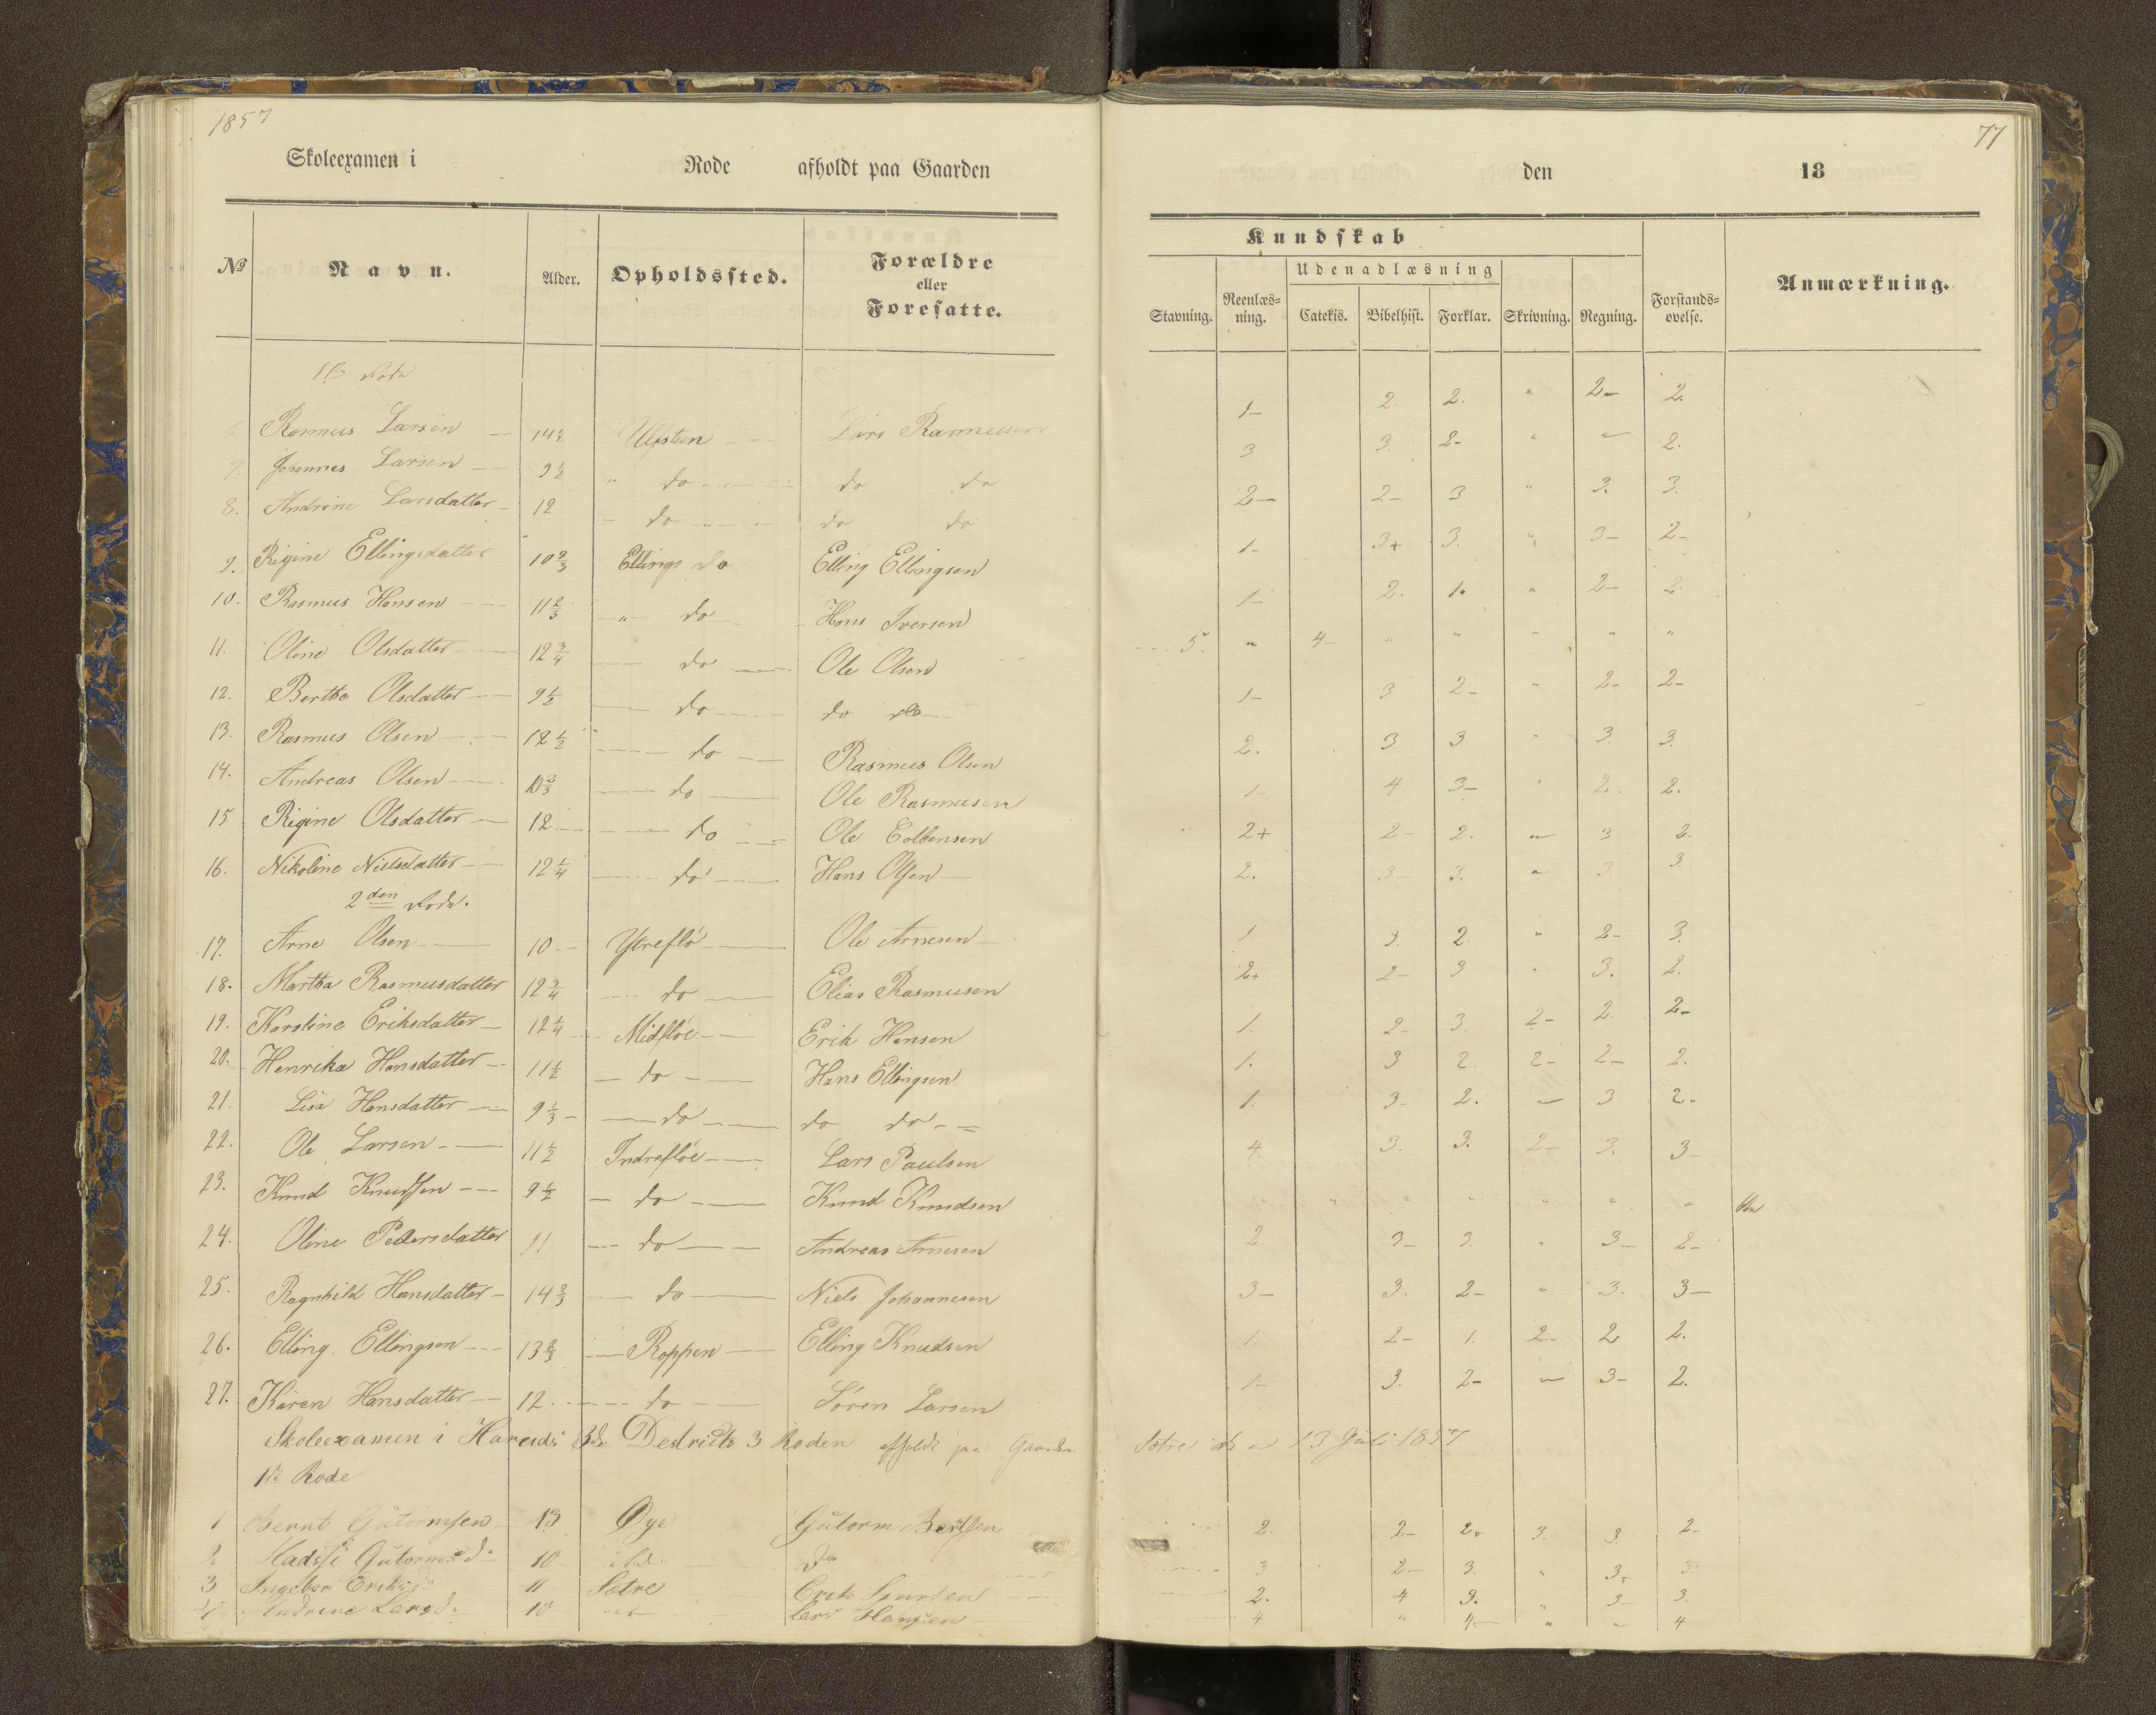 1857
77
Skoleexamen i Rode afholdt paa Gaarden den 18
Kundskab
Udenadlæsning
№ Navn. Alder. Opholdssted. Forældre eller Foresatte. Stavning. Reenlæs-ning. Catekis. Bibelhist. Forklar. Skrivning. Regning. Forstands-øvelse. Anmærkning.
1ste Rode
Rasmus Larsen 14 Ulfsten Lars Rasmusen 1- 2. 2. " 2- 2.
7. Johannes Larsen 9 1/2 " do do do 3 3. 2- " " 2.
8. Andrine Larsdatter 12 do do do 2- 2- 3 " 3. 3.
9. Rigine Ellingsdatter 10 2/3 Ellings do Elling Ellingsen 1- 3+ 3. " 3- 2-
10. Rasmus Hansen 11 2/3 " do Hans Iversen 1- 2. 1. " 2- 2.
11. Oline Olsdatter 12 3/4 do Ole Olsen 5. " 4- " " " " "
12. Berthe Olsdatter 9 1/2 do do do 1- 3 2- " 2- 2-
13. Rasmus Olsen 12 1/2 do Rasmus Olsen 2. 3 3 " 3. 3.
14. Andreas Olsen 10 2/3 do Ole Rasmusen 1- 4. 3- " 2. 2.
15 Rigine Olsdatter 12 do Ole 2+ 2- 2. " 3 2.
16. Nikoline Nielsdatter 12 1/4 do Hans Olsen 2. 3- 3. " 3. 3
2den Rode.
17. Arne Olsen 10 Ytreflö Ole Arnesen 1 3. 2. " 2- 3.
18. Martha Rasmusdatter 12 3/4 do Elias Rasmusen 2+ 2- 3 " 3. 2.
19. Karoline Eriksdatter 12 1/4 Midflöe Erik Hansen 1. 2- 3. 2- 2. 2-
20. Henrika Hansdatter 11 1/2 do Hans Ellingsen 1. 3 2 2- 2- 2.
21. Lisa Hansdatter 9 1/3 do do do 1. 3- 2. " 3 2-
22. Ole Larsen 11 1/2 Indreflöe Lars Paulsen 4 3. 3. 2- 3. 3-
23. Knud Knudsen 9 1/2 do Knud Knudsen " " " " " " "
24. Oline Pedersdatter 11 do Andreas Arnesen 2 3- 3. " 3- 2-
25. Ragnhild Hansdatter 14 2/3 do Niels Johannesen 3- 3. 2- " 3. 3-
26. Elling Ellingsen 13 2/3 Roppen Elling Knudsen 1. 2- 1. 2- 2 2.
27. Karen Hansdatter 12 do Sören Larsen 1- 3. 2- " 3- 2.
Skoleexamen i Hareids 3de Destricts 3 Roden afholdt paa Gaarden Sætre den 13 Juli 1857
1ste Rode
1 Bernt Gutormsen 13 Øye Gutorm Bertsen 2. 2- 2+ 3. 3. 2-
2 Gutormsd. 10 ibd. Do 3 2- 3. " 3+ 3
3 Ingebor Eriksd. 11 Sætre Erik 2. 4 3. " 3- 3.
4 Andrine Larsd. 10 Lars Hansen 4 " 4- " " 4